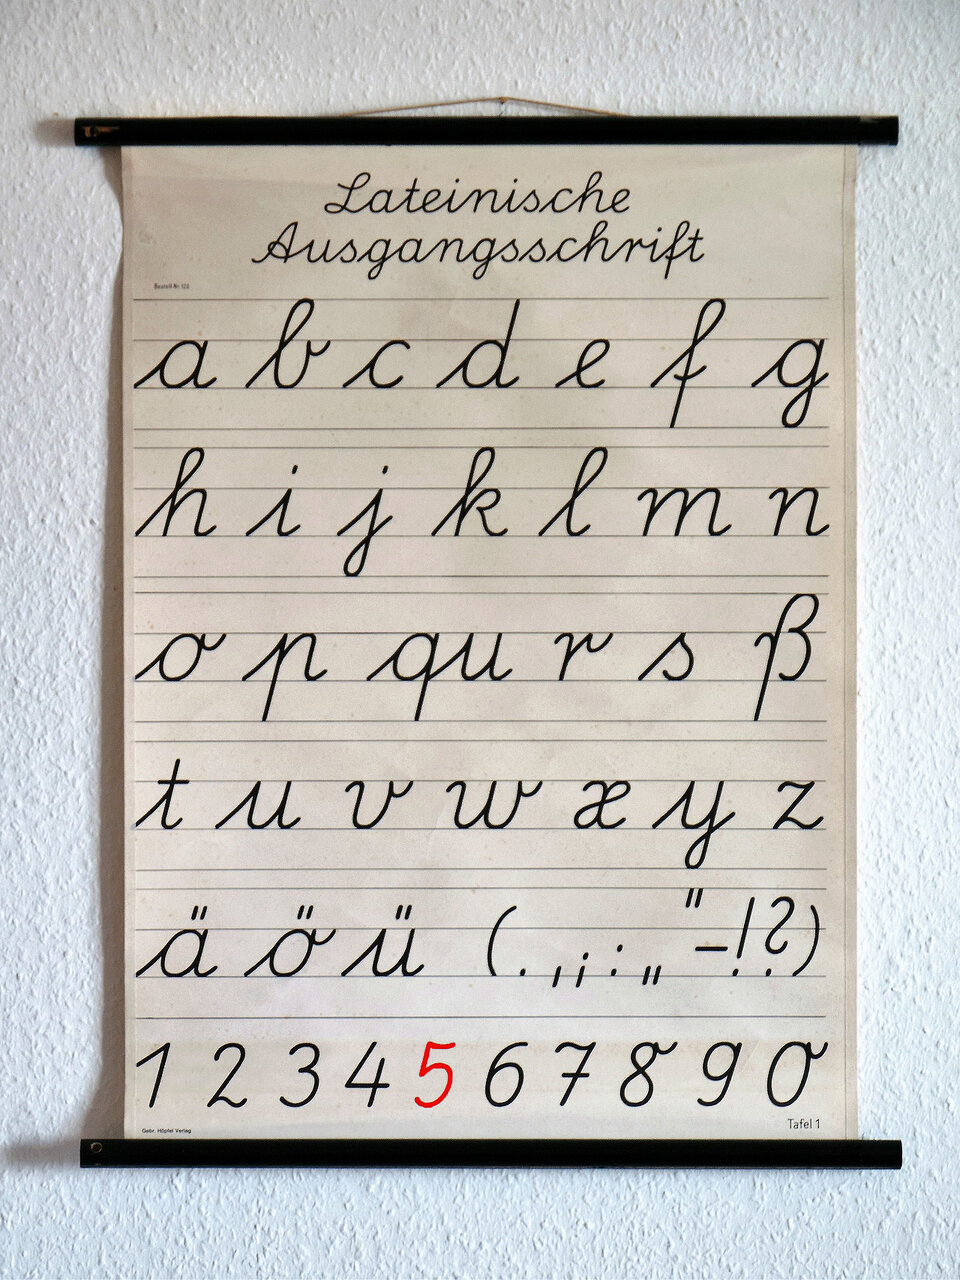 Lateinische
Ausgangsschrift
Bestell-Nr. 120
a b c d e f g
h i j k l m n
o p qu r s ß
t u v w x y z
ä ö ü ( . , ; : „ " – ! ? )
1 2 3 4 5 6 7 8 9 0
Gebr. Höpfel Verlag
Tafel 1